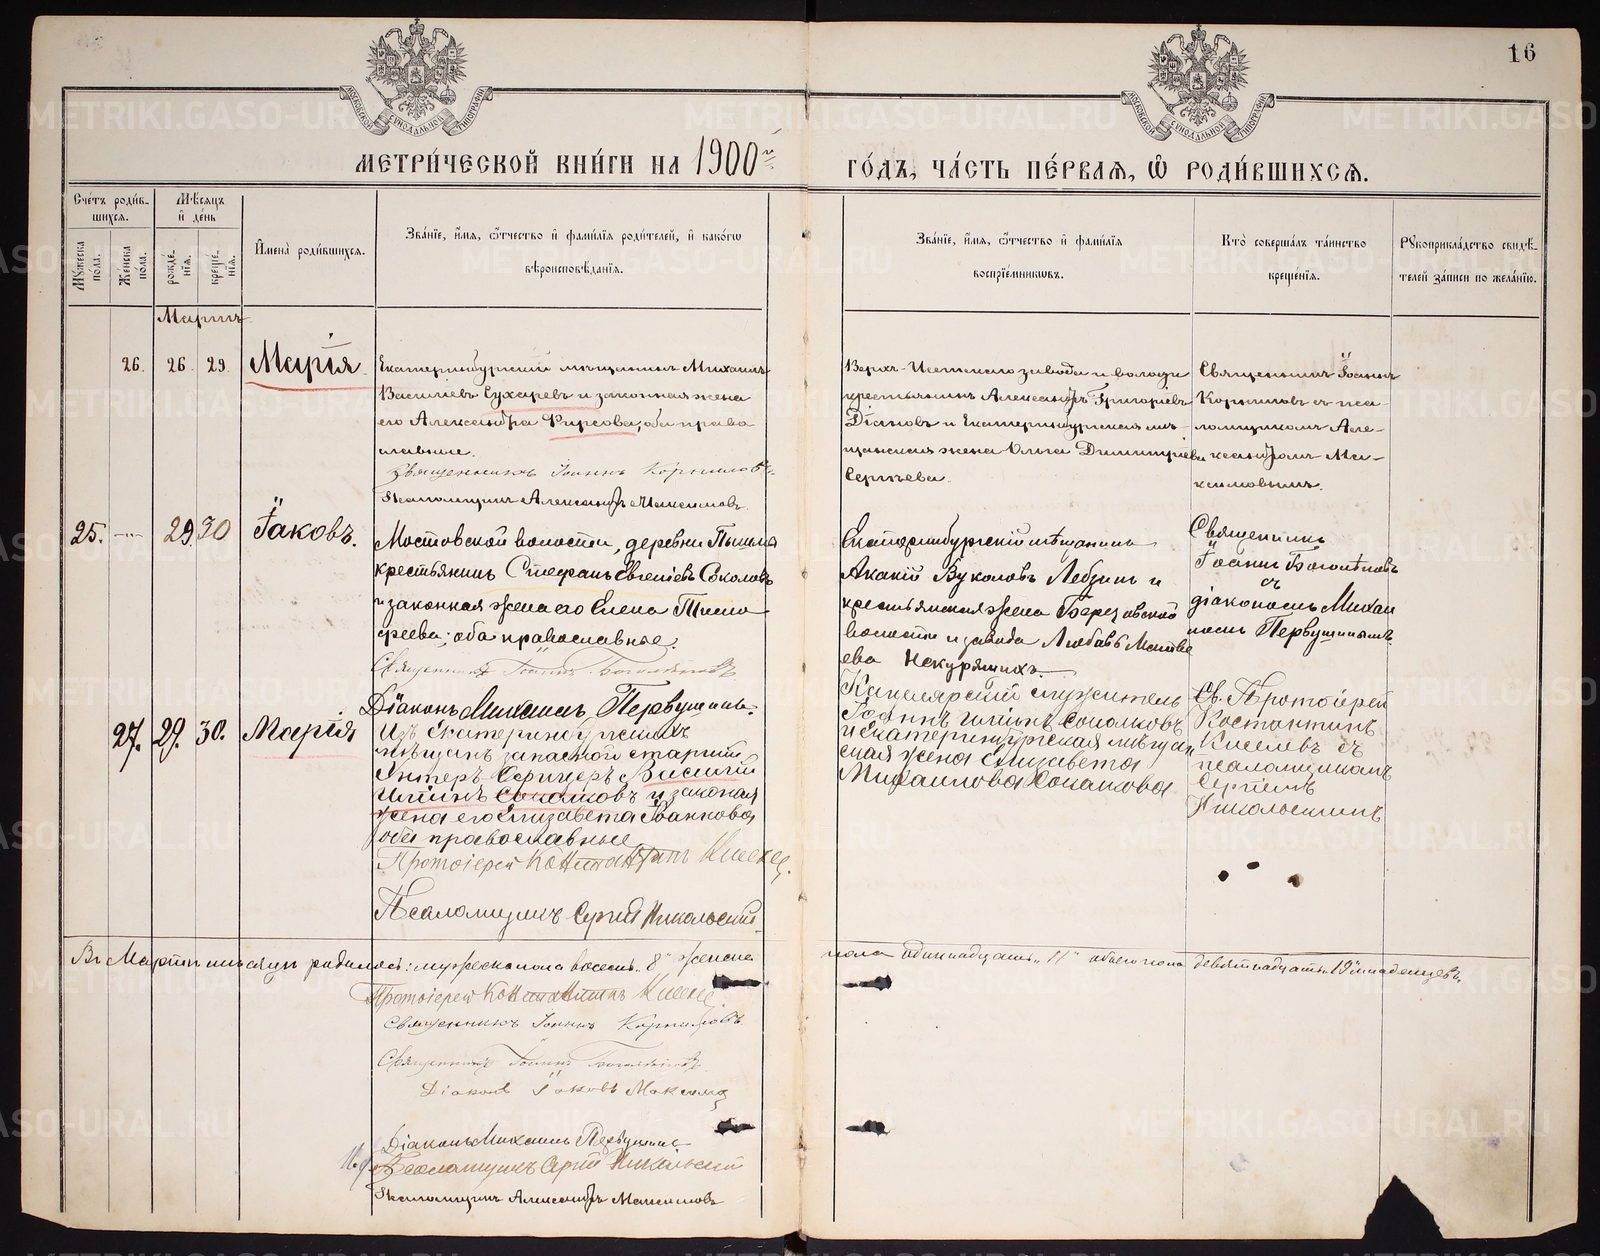 16
МЕТРИ́ЧЕСКОЙ КНИ́ГИ НА 1900й ГО́ДЪ, ЧА́СТЬ ПЕ́РВАѦ, Ѡ҆ РОДИ́ВШИХСѦ.
Сче́тъ роди́вшихсѧ.
Мѣ́сяцъ и҆ де́нь
Мꙋ́жеска по́ла.
Же́нска по́ла.
рожде́нїѧ.
креще́нїѧ.
И҆мена̀ роди́вшихсѧ.
Зва́нїе, и҆́мѧ, ѻ҆́тчество и҆ фами́лїѧ роди́телей, и҆ како́гѡ вѣроисповѣ́данїѧ.
Зва́нїе, и҆́мѧ, ѻ҆́тчество и҆ фами́лїѧ воспрїе́мникѡвъ.
Кто̀ соверша́лъ та́инство креще́нїѧ.
Рꙋкоприкла́дство свидѣ́телей за́писи по жела́нїю.
Мартъ
26. 26. 29. Марія
Екатеринбургский мѣщанинъ Михаилъ
Василиевъ Сухаревъ и законная жена
его Александра Фирсова, оба право-
славные.
Священникъ Іоаннъ Корниловъ
Псаломщикъ Александръ Максимовъ.
Верхъ-Исетскаго завода и волости
крестьянинъ Александръ Григоріевъ
Діановъ и Екатеринбургская мѣ-
щанская жена Ольга Димитріева
Сергѣева.
Священникъ Іоаннъ
Корниловъ съ пса-
ломщикомъ Але-
ксандромъ Ма-
ксимовымъ.
25. — 29. 30 Іаковъ.
Мостовской волости, деревни Пышмы
крестьянинъ Стефанъ Евгеніевъ Соколовъ
и законная жена его Елена Тимо-
феева; оба православные.
Священникъ Іоаннъ Богомѣновъ
Діаконъ Михаилъ Первушинъ.
Екатеринбургскій мѣщанинъ
Акакій Вуколовъ Лебзинъ и
крестьянская жена Березовской
волости и завода Любавь Матве-
ева Некурящихъ.
Священникъ
Іоаннъ Богомѣновъ
съ
діакономъ Михаи
ломъ Первушинымъ.
27. 29. 30. Марія
Изъ Екатеринбургскихъ
мѣщанъ запасной старшій
Унтеръ-Офицеръ Василій
Ильинъ Соколковъ и законая
жена его Елизавета Іоаннова
оба православные
Протоіерей Константинъ Киселевъ.
Псаломщикъ Сергій Никольский.
Канцелярскій служитель
Іоаннъ Ильинъ Соколковъ
и Екатеринбургская мѣщан
ская жена Елизавета
Михаилова Соколкова
Св. Протоіерей
Костантинъ
Киселевъ съ
псаломщикомъ
Сергіемъ
Никольскимъ
Въ Мартѣ мѣсяцѣ родилось: мужеска пола восемь „8" женска
пола одиннадцать „11" обоего пола девятнадцать „19" младенцевъ.
Протоіерей Константинъ Киселевъ
Священникъ Іоаннъ Корниловъ.
Священникъ Іоаннъ Богомѣновъ
Діаконъ Іаковъ Максимо
Діаконъ Михаилъ Первушинъ
Псаломщикъ Сергій Никольский
Псаломщикъ Александръ Максимовъ
METRIKI.GASO-URAL.RU